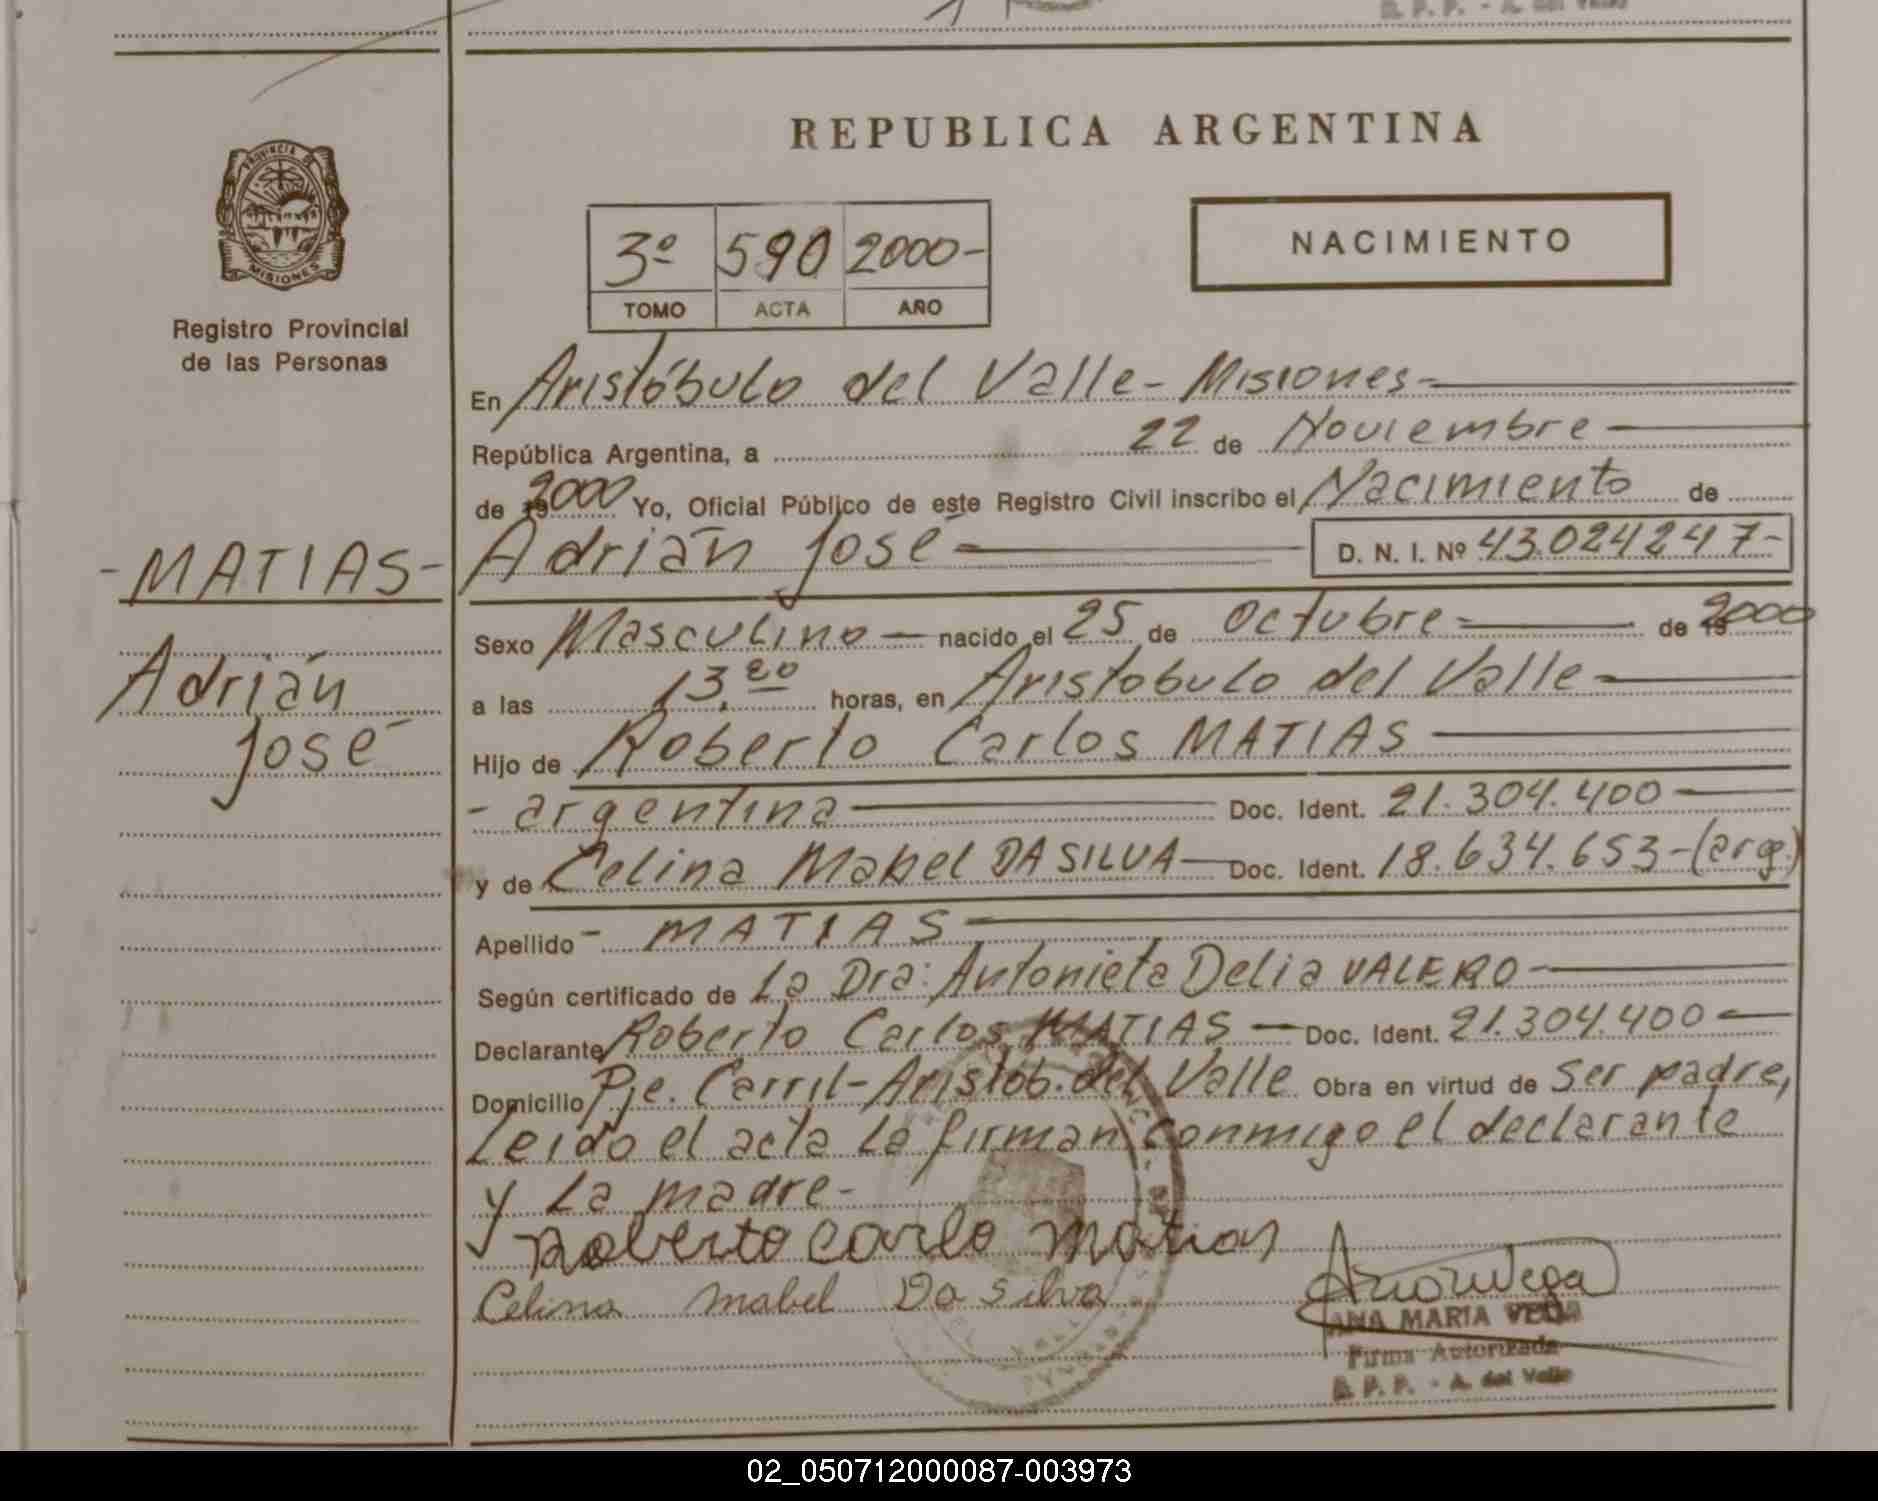 R. P. P. - A. del Valle
PROVINCIA DE
MISIONES
Registro Provincial
de las Personas
- MATIAS -
Adrián
José
REPUBLICA ARGENTINA
3º 590 2000-
TOMO ACTA AÑO
NACIMIENTO
En Aristóbulo del Valle - Misiones -
República Argentina, a 22 de Noviembre
de 2000 Yo, Oficial Público de este Registro Civil inscribo el Nacimiento de
Adrián José D. N. I. Nº 43.024247-
Sexo Masculino - nacido el 25 de Octubre de 2000
a las 13.20 horas, en Aristobulo del Valle
Hijo de Roberto Carlos MATIAS
- argentina Doc. Ident. 21.304.400
y de Celina Mabel DA SILVA - Doc. Ident. 18.634.653 - (arg.)
Apellido - MATIAS
Según certificado de La Dra: Antonieta Delia VALERO
Declarante Roberto Carlos MATIAS - Doc. Ident. 21.304.400
Domicilio Pje. Carril - Aristob. del Valle Obra en virtud de ser padre,
Leido el acta La firman conmigo el declarante
y La madre -
Roberto Carlo Matias
Celina Mabel Da Silva
ANA MARIA VEGA
Firma Autorizada
R. P. P. - A. del Valle
02_050712000087-003973